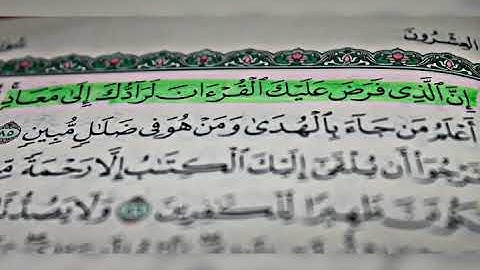 العشرون
إِنَّ ٱلَّذِى فَرَضَ عَلَيْكَ ٱلْقُرْءَانَ لَرَآدُّكَ إِلَىٰ مَعَادٍ
أَعْلَمُ مَن جَآءَ بِٱلْهُدَىٰ وَمَنْ هُوَ فِى ضَلَٰلٍ مُّبِينٍ ٨٥
تَرْجُوٓا۟ أَن يُلْقَىٰٓ إِلَيْكَ ٱلْكِتَٰبُ إِلَّا رَحْمَةً
ظَهِيرًا لِّلْكَٰفِرِينَ ٨٦ وَلَا يَصُدُّنَّكَ